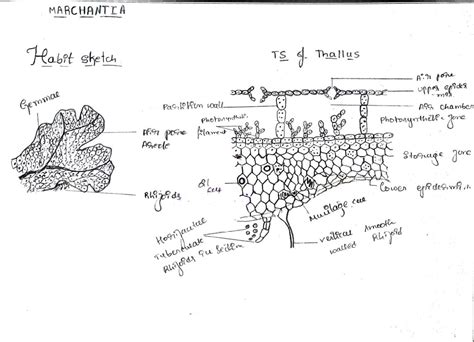 MARCHANTIA
Habit sketch
TS of Thallus
Gemmae
Air pore
Areole
Rhizoids
Partition wall
Photosynthetic
filament
Oil
Air pore
upper epider
Air chamber
Photosynthetic zone
Storage zone
Lower epidermis
Mucilage
Horizontal
Tuberculate
Rhizoids in section
vertical smooth
walled Rhizoid